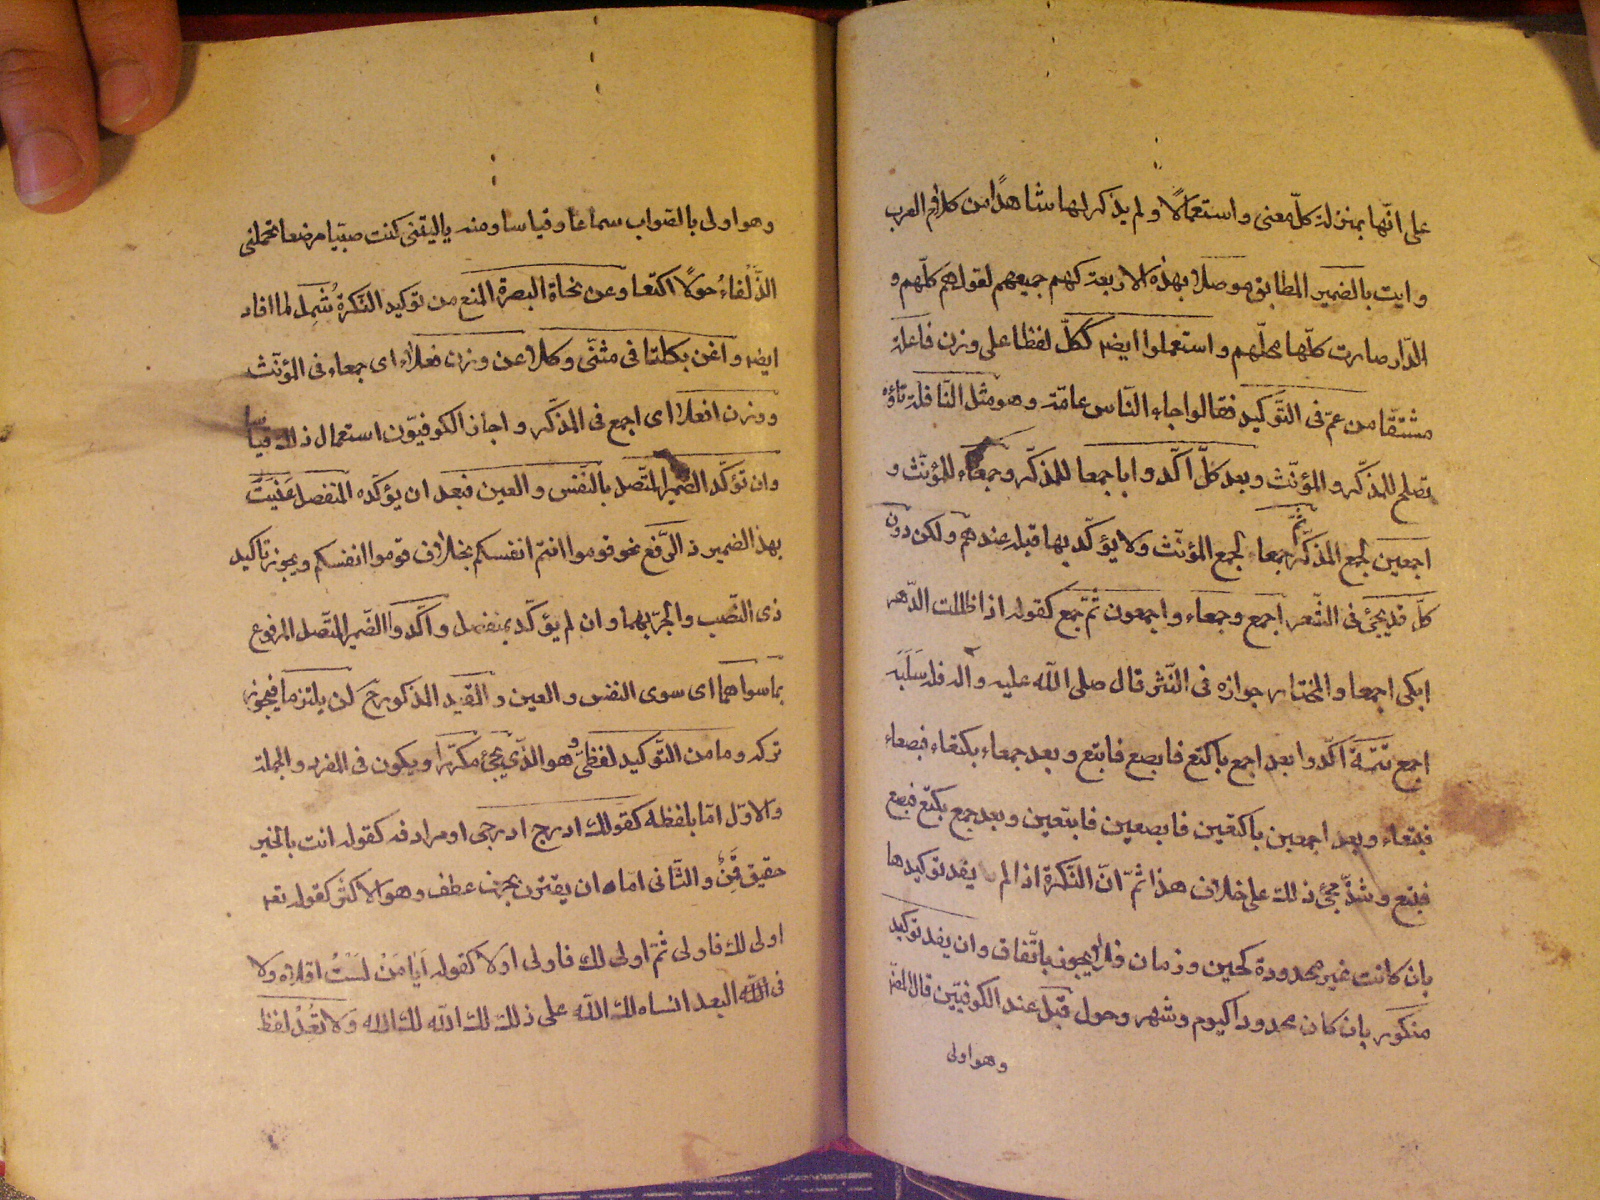 على انّها بمنزلة كلّ معنى واستعمالًا ولم يذكر لها شاهدًا من كلام العرب
وايت بالضمير المطابق موصلا بهذه الاربعة كهم جميعهم لقولهم كلّهم و
الدّار صارت كلّها محلّهم واستعملوا ايضه ككلّ لفظا على وزن فاعلة
مشتقّا من عمّ فى التّوكيد فقالوا جاء النّاس عامّة وهو مثل النّافلة تاؤه
تصلح للمذكّر والمؤنّث وبعد كلّ اكّدوا باجمعا للمذكّر وجمعاء للمؤنّث و
اجمعين لجمع المذكّر ثمّ جمعاء لجمع المؤنّث ولا يؤكّد بها قبله عندهم ولكن دون
كلّ قد يجئ فى الشّعر اجمع وجمعاء واجمعون ثمّ جمع كقوله اذا ظللت الدّهر
ابكى اجمعا والمختار جوازه فى النّثر قال صلى الله عليه واله فله سَلَبَه
اجمع تتمّة اكّدوا بعد اجمع باكتع فابصع فابتع وبعد جمعاء بكتعاء فبصعاء
فبتعاء وبعد اجمعين باكتعين فابصعين فابتعين وبعد جمع بكتع فبصع
فبتع وشذّ مجئ ذلك على خلاف هذا ثمّ انّ النّكرة اذا لم يفد توكيدها
بان كانت غير محدودة كحين وزمان فلا يجوز باتّفاق وان يفد توكيد
منكور بان كان محدودا كيوم وشهر وحول قبل عند الكوفيّين قال المصّ
وهو اولى
وهو اولى بالصّواب سماعا وقياسا ومنه ياليتنى كنت صبيّا مرضعا تحملنى
الذّلفاءُ حولًا اكتعا وعن نحاة البصرة المنع من توكيد النّكرة شمل لما افاد
ايضه واغن بكلتا فى مثنّى وكلا عن وزن فعلاء اى جمعاء فى المؤنّث
ووزن افعلا اى اجمع فى المذكّر واجاز الكوفيّون استعمال ذلك قياسا
وان تؤكّد الضمير المتّصل بالنّفس والعين فبعد ان يؤكّده المنفصل عَنَيتُ
بهذ الضمير ذ الرّفع نحو قوموا انتم انفسكم بخلاف قوموا انفسكم ويجوز تاكيد
ذى النّصب والجرّ بهما وان لم يؤكّد بمنفصل واكّدوا الضّمير المتّصل المرفوع
بما سواهما اى سوى النفس والعين والقيد المذكورح لن يلتزما فيجوز
تركه وما من التّوكيد لفظىّ وهو الذّى يجئ مكرّرا ويكون فى المفرد والجملة
والاوّل امّا بلفظه كقولك ادرج ادرجى او مرادفه كقوله انت بالخير
حقيق قَمِنٌ والثّانى امّا ان يقترن بحرف عطف وهو الاكثر كقوله تعه
اولى لك فاولى ثمّ اولى لك فاولى اولا كقوله اَيا مَنْ لَسْتُ اقلاه ولا
فى البعد انساه لك الله على ذلك لك الله لك الله ولا تُعِدْ لفظ